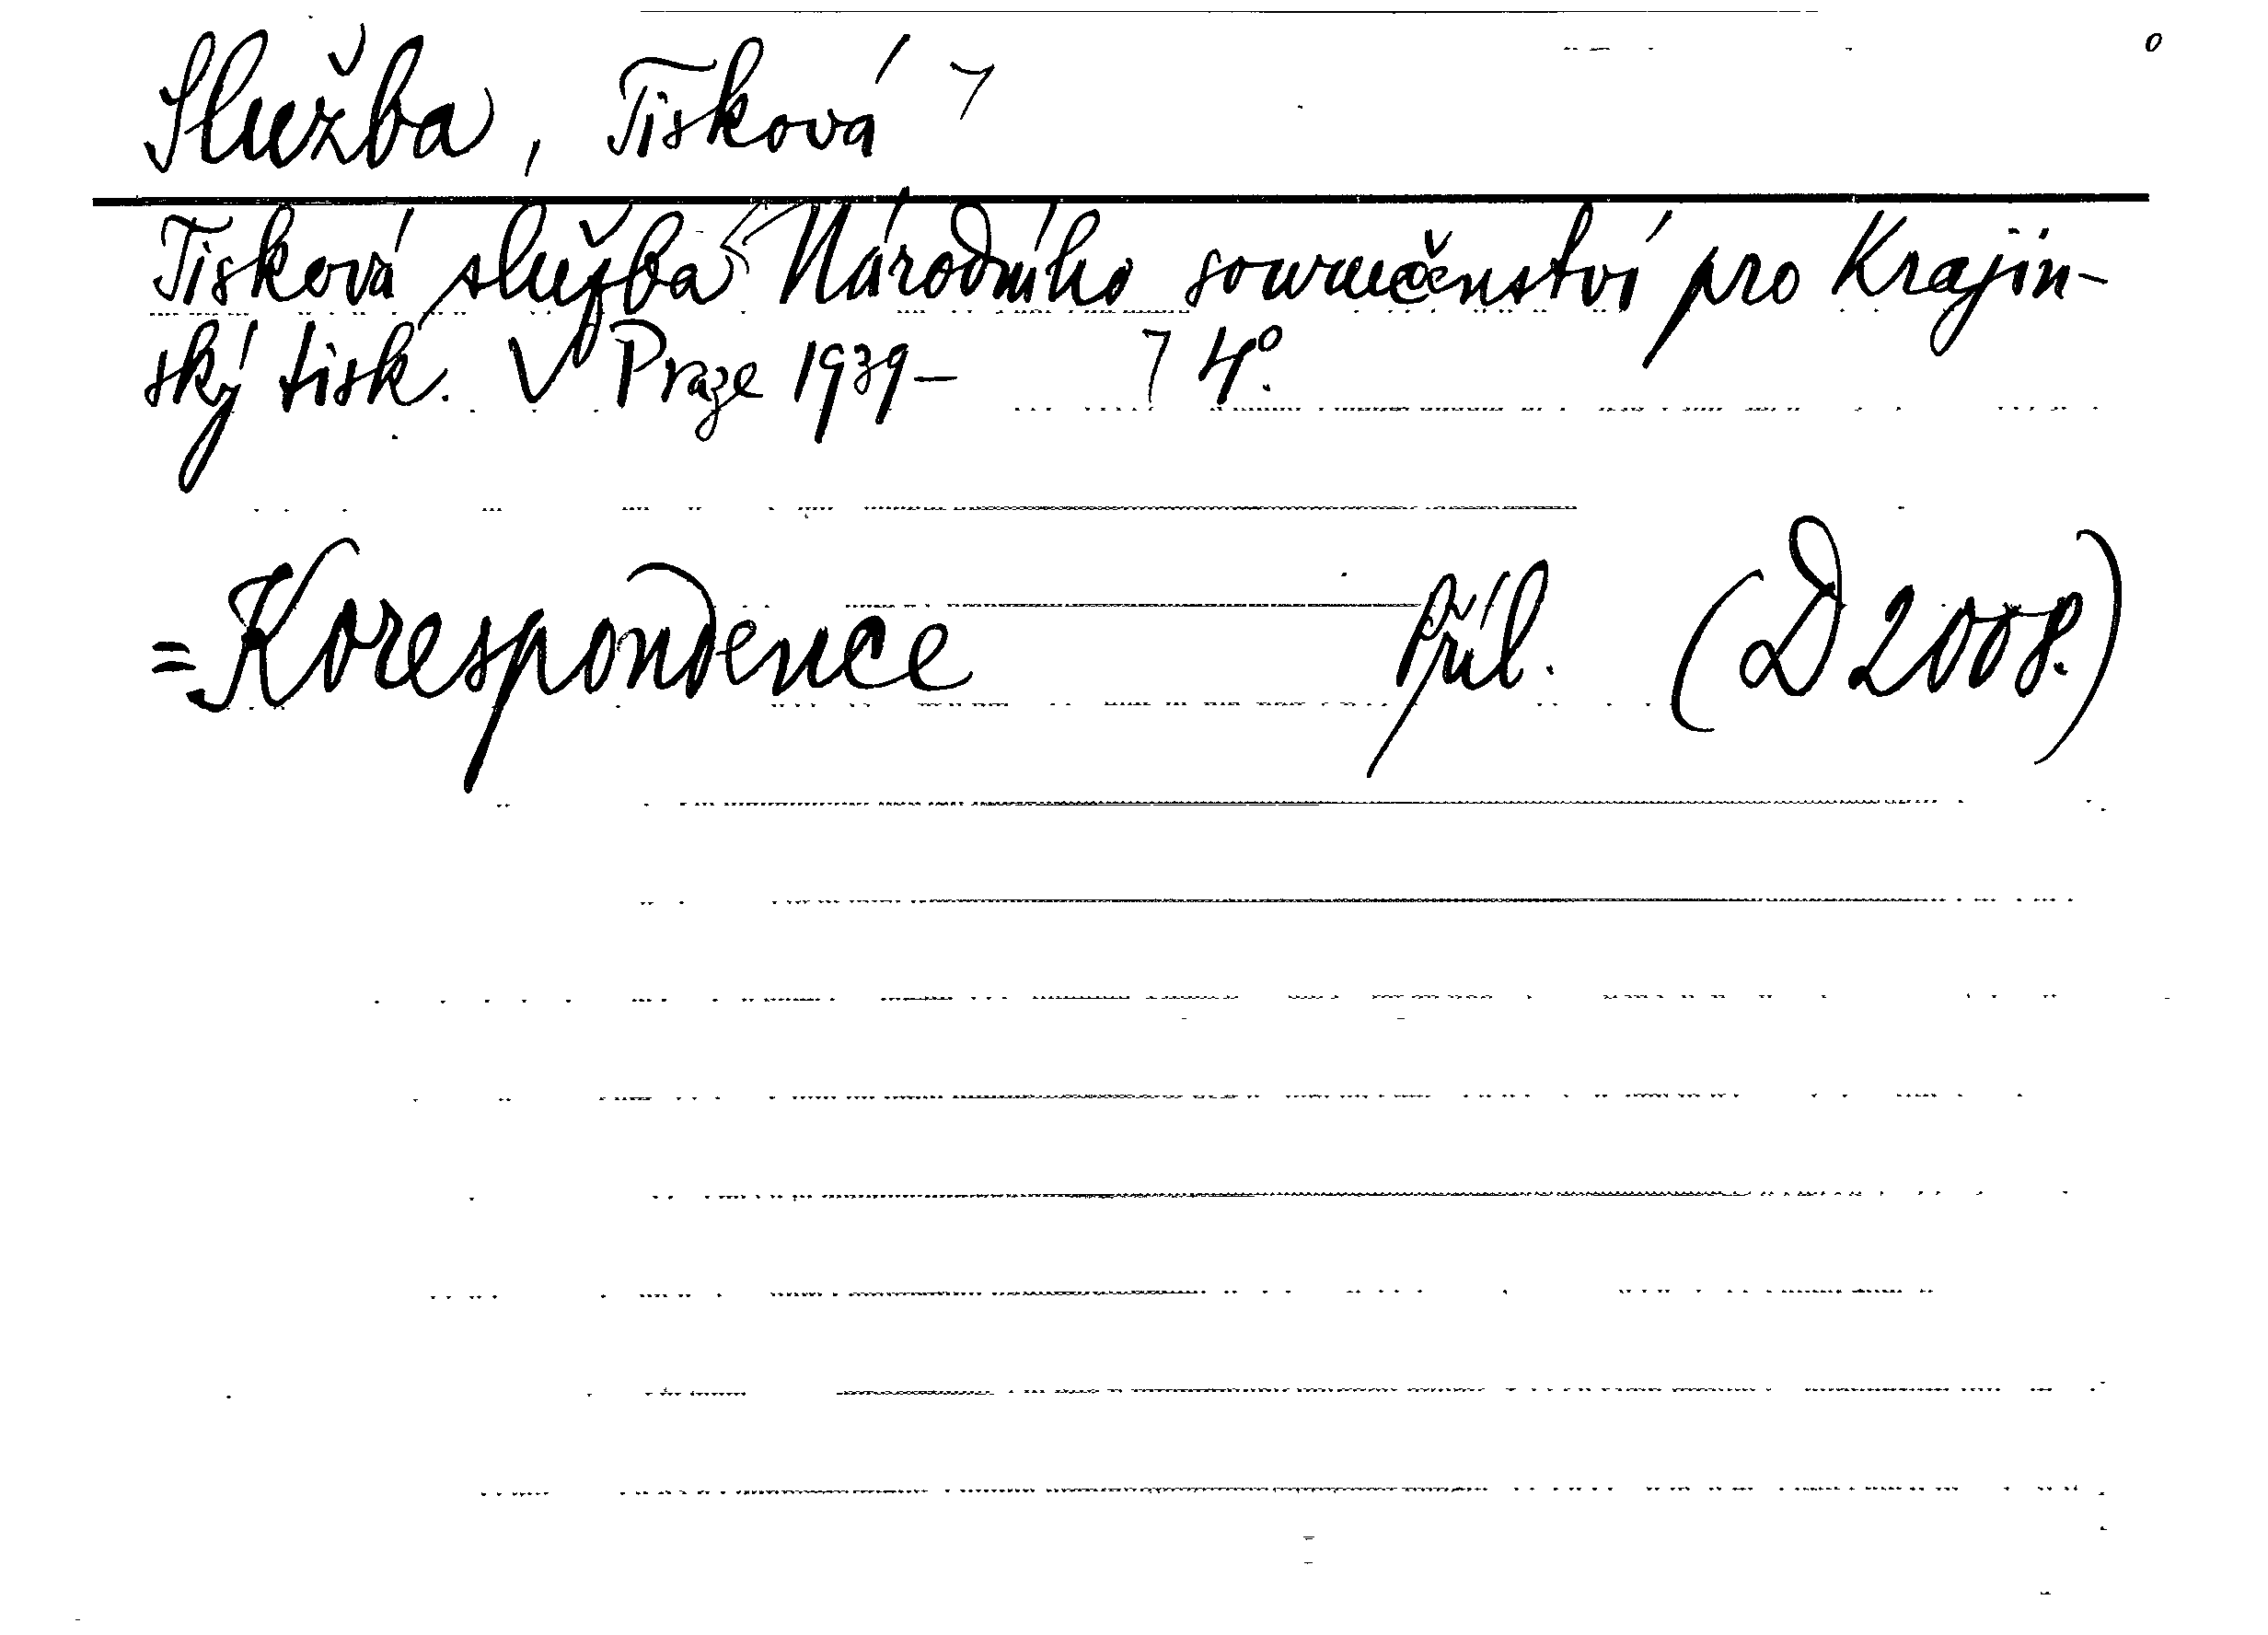 Služba, Tisková ⌝
Tisková služba Národního souručenství pro Krajin-
ský tisk. V Praze 1939– ⌝ 4°.
=Korespondence Příl. (D 2008.)